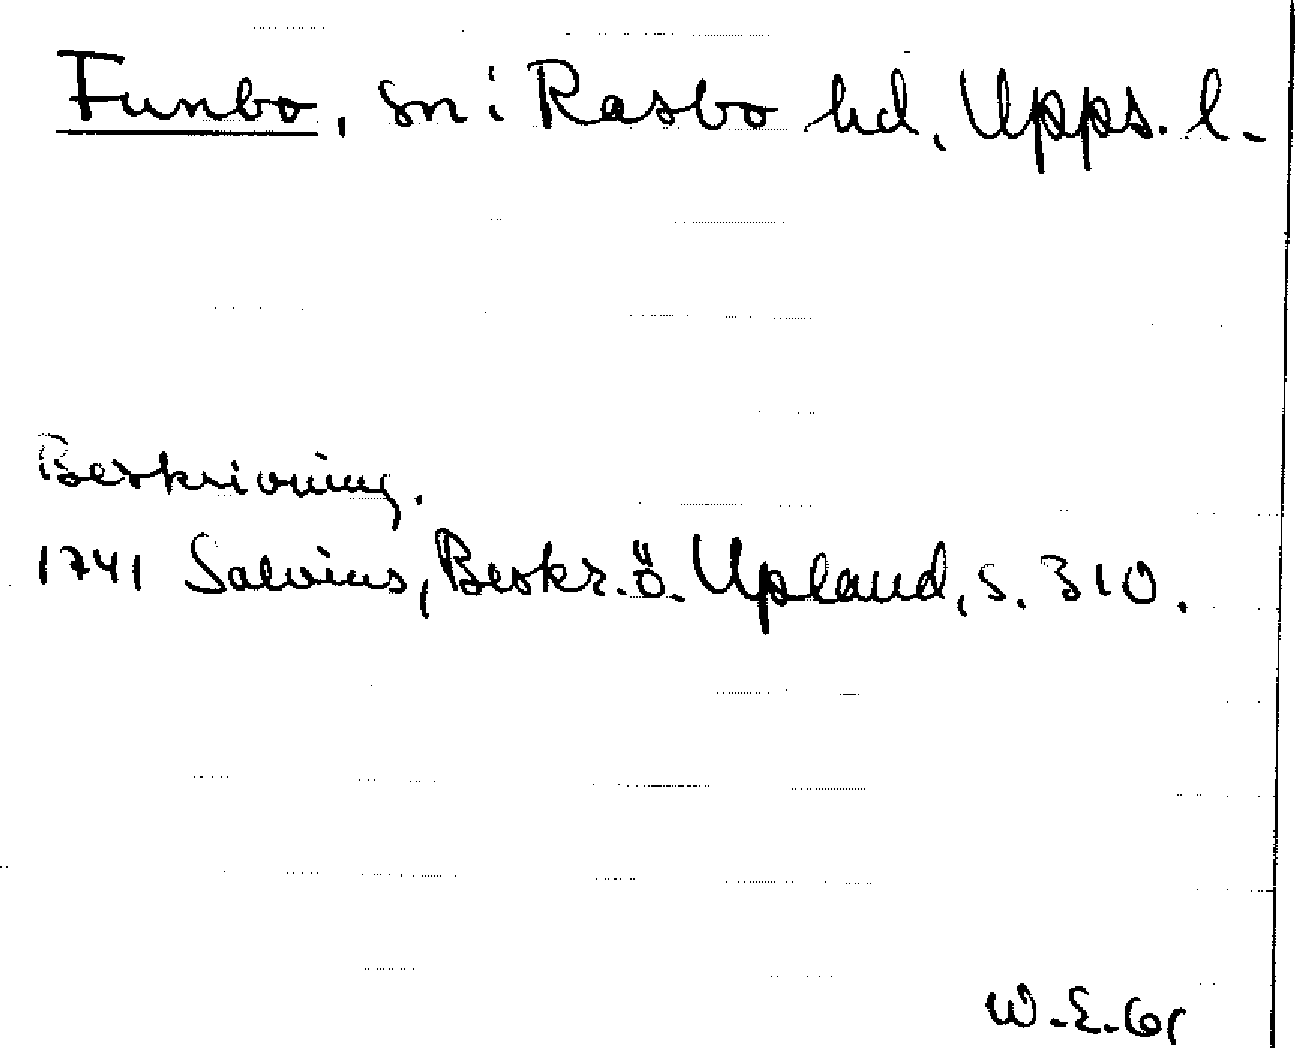 Funbo, sn i Rasbo hd. Upps. l.
Beskrivning.
1741 Salvius, Beskr. ö. Upland, s. 310.
W.E.